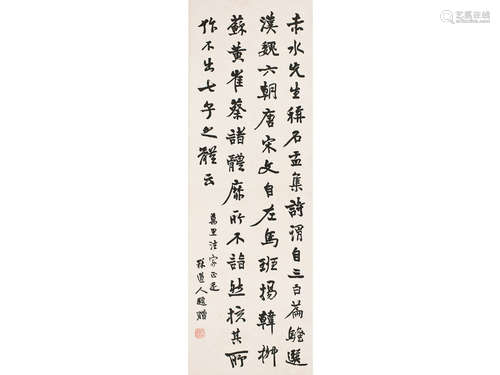 赤水先生稱石孟集詩謂自三百篇騷選
漢魏六朝唐宋文自左馬班揚韓柳
蘇黃崔蔡諸體靡所不詣然核其所
作不出七子之體云
萬里法家正
道人